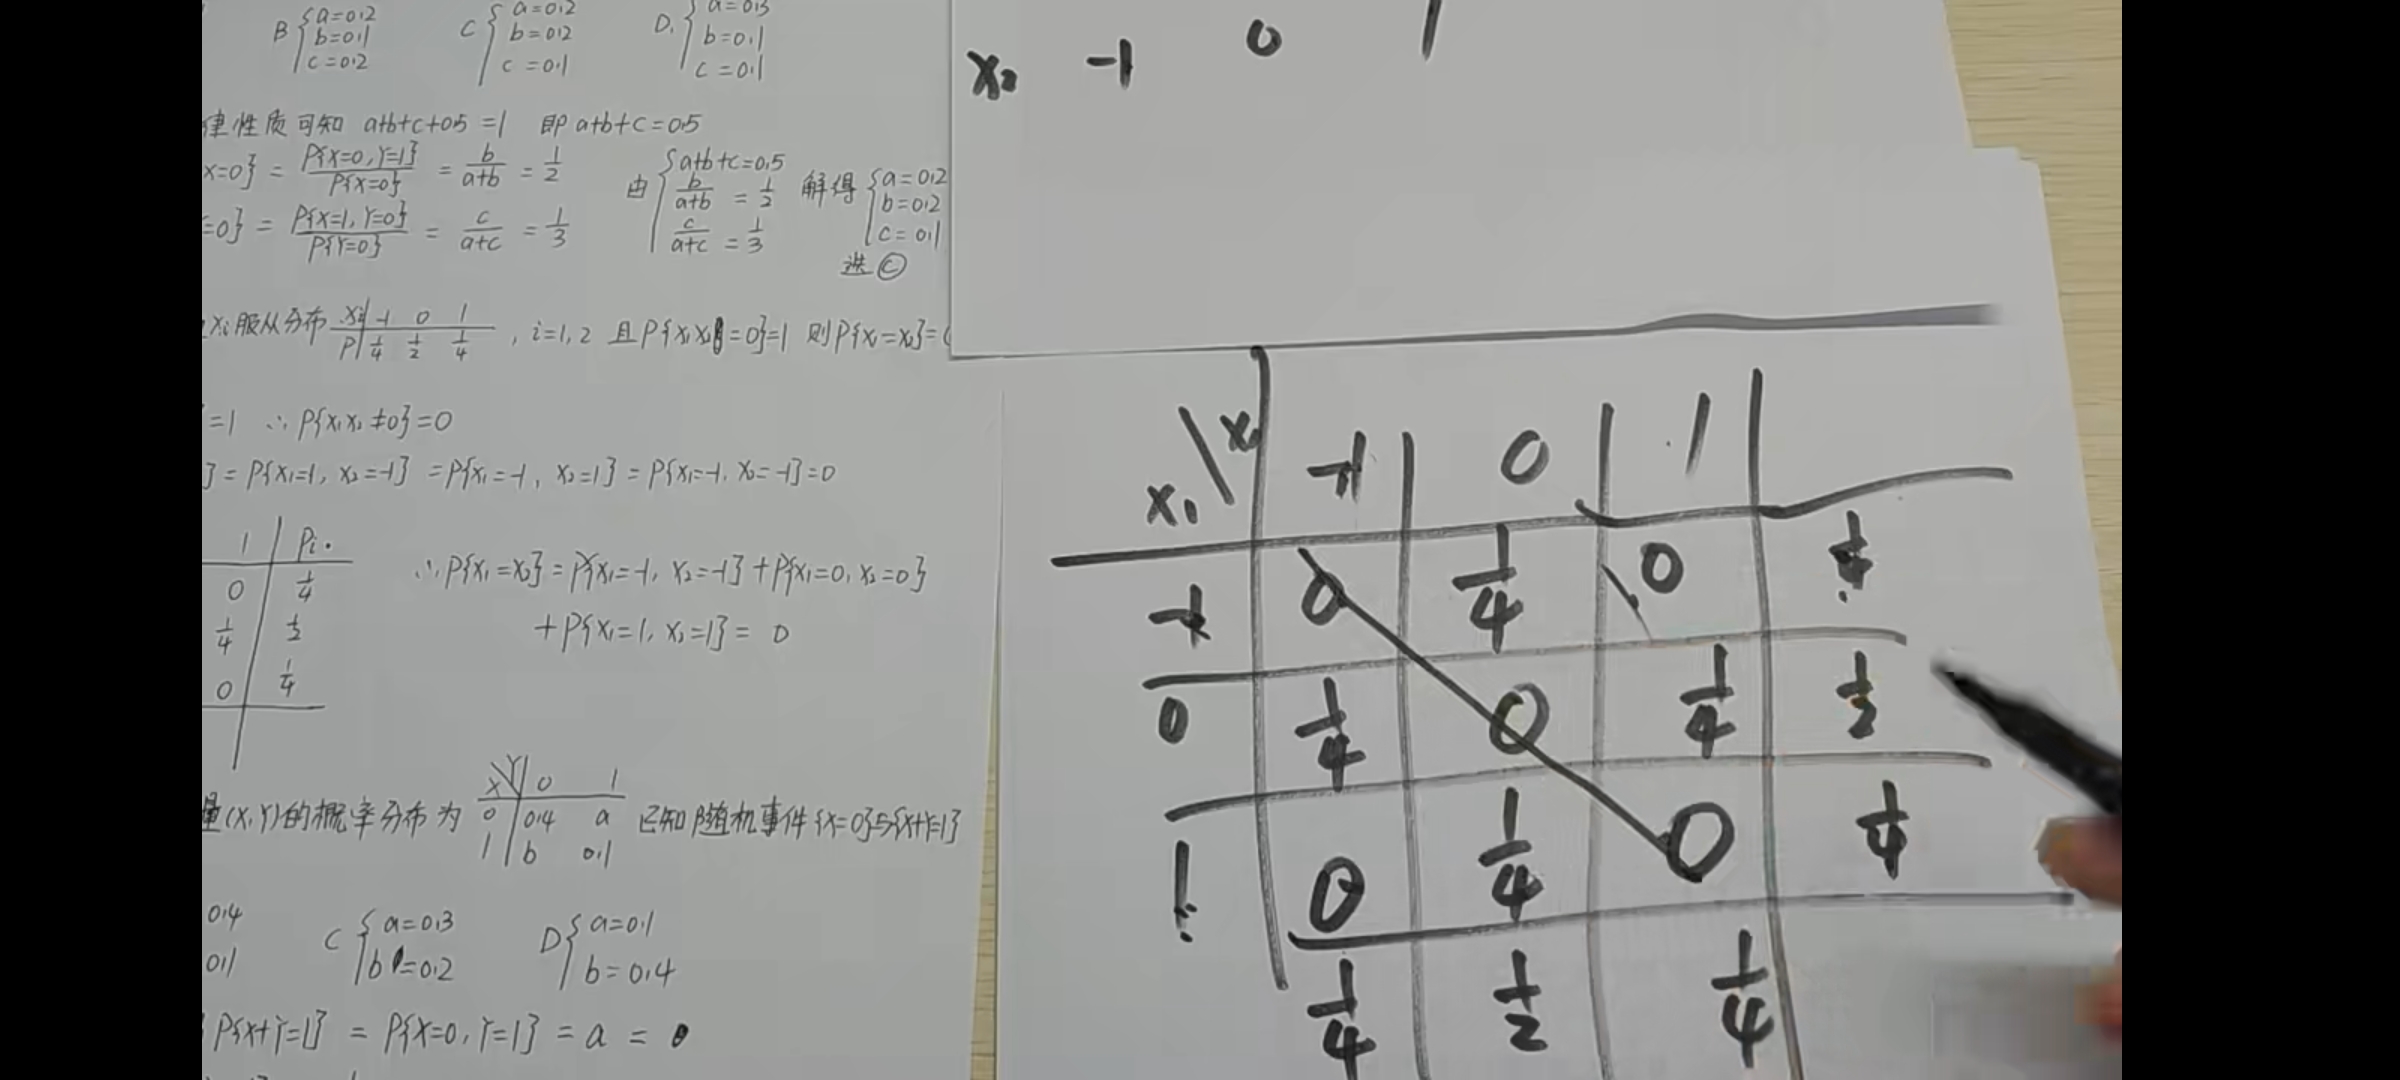 B { a=0.2 b=0.1 c=0.2 C { a=0.2 b=0.2 c=0.1 D. { a=0.3 b=0.1 c=0.1
律性质可知 a+b+c+0.5=1 即 a+b+c=0.5
x=0} = P{X=0,Y=1}/P{X=0} = b/(a+b) = 1/2
=0} = P{X=1,Y=0}/P{Y=0} = c/(a+c) = 1/3
由 { a+b+c=0.5 b/(a+b) = 1/2 c/(a+c) = 1/3 解得 { a=0.2 b=0.2 c=0.1
选 Ⓒ
Xi 服从分布 Xi -1 0 1 P 1/4 1/2 1/4 , i=1,2 且 P{X₁X₂=0}=1 则 P{X₁=X₂}=(
}=1 ∴ P{X₁X₂≠0}=0
}=P{X₁=1, X₂=-1} =P{X₁=-1, X₂=1} =P{X₁=-1, X₂=-1}=0
1 Pi·
0 1/4
1/4 1/2
0 1/4
∴P{X₁=X₂}=P{X₁=-1, X₂=-1}+P{X₁=0, X₂=0}
+P{X₁=1, X₂=1}= 0
量(X,Y)的概率分布为 X Y 0 1 0 0.4 a 1 b 0.1 已知随机事件{X=0}与{X+Y=1}
0.4 0.1 C { a=0.3 b=0.2 D { a=0.1 b=0.4
P{X+Y=1} = P{X=0,Y=1} = a =
X₂ -1 0 1
X₁ X₂ -1 0 1
-1 0 1/4 0 1/4
0 1/4 0 1/4 1/2
1 0 1/4 0 1/4
1/4 1/2 1/4